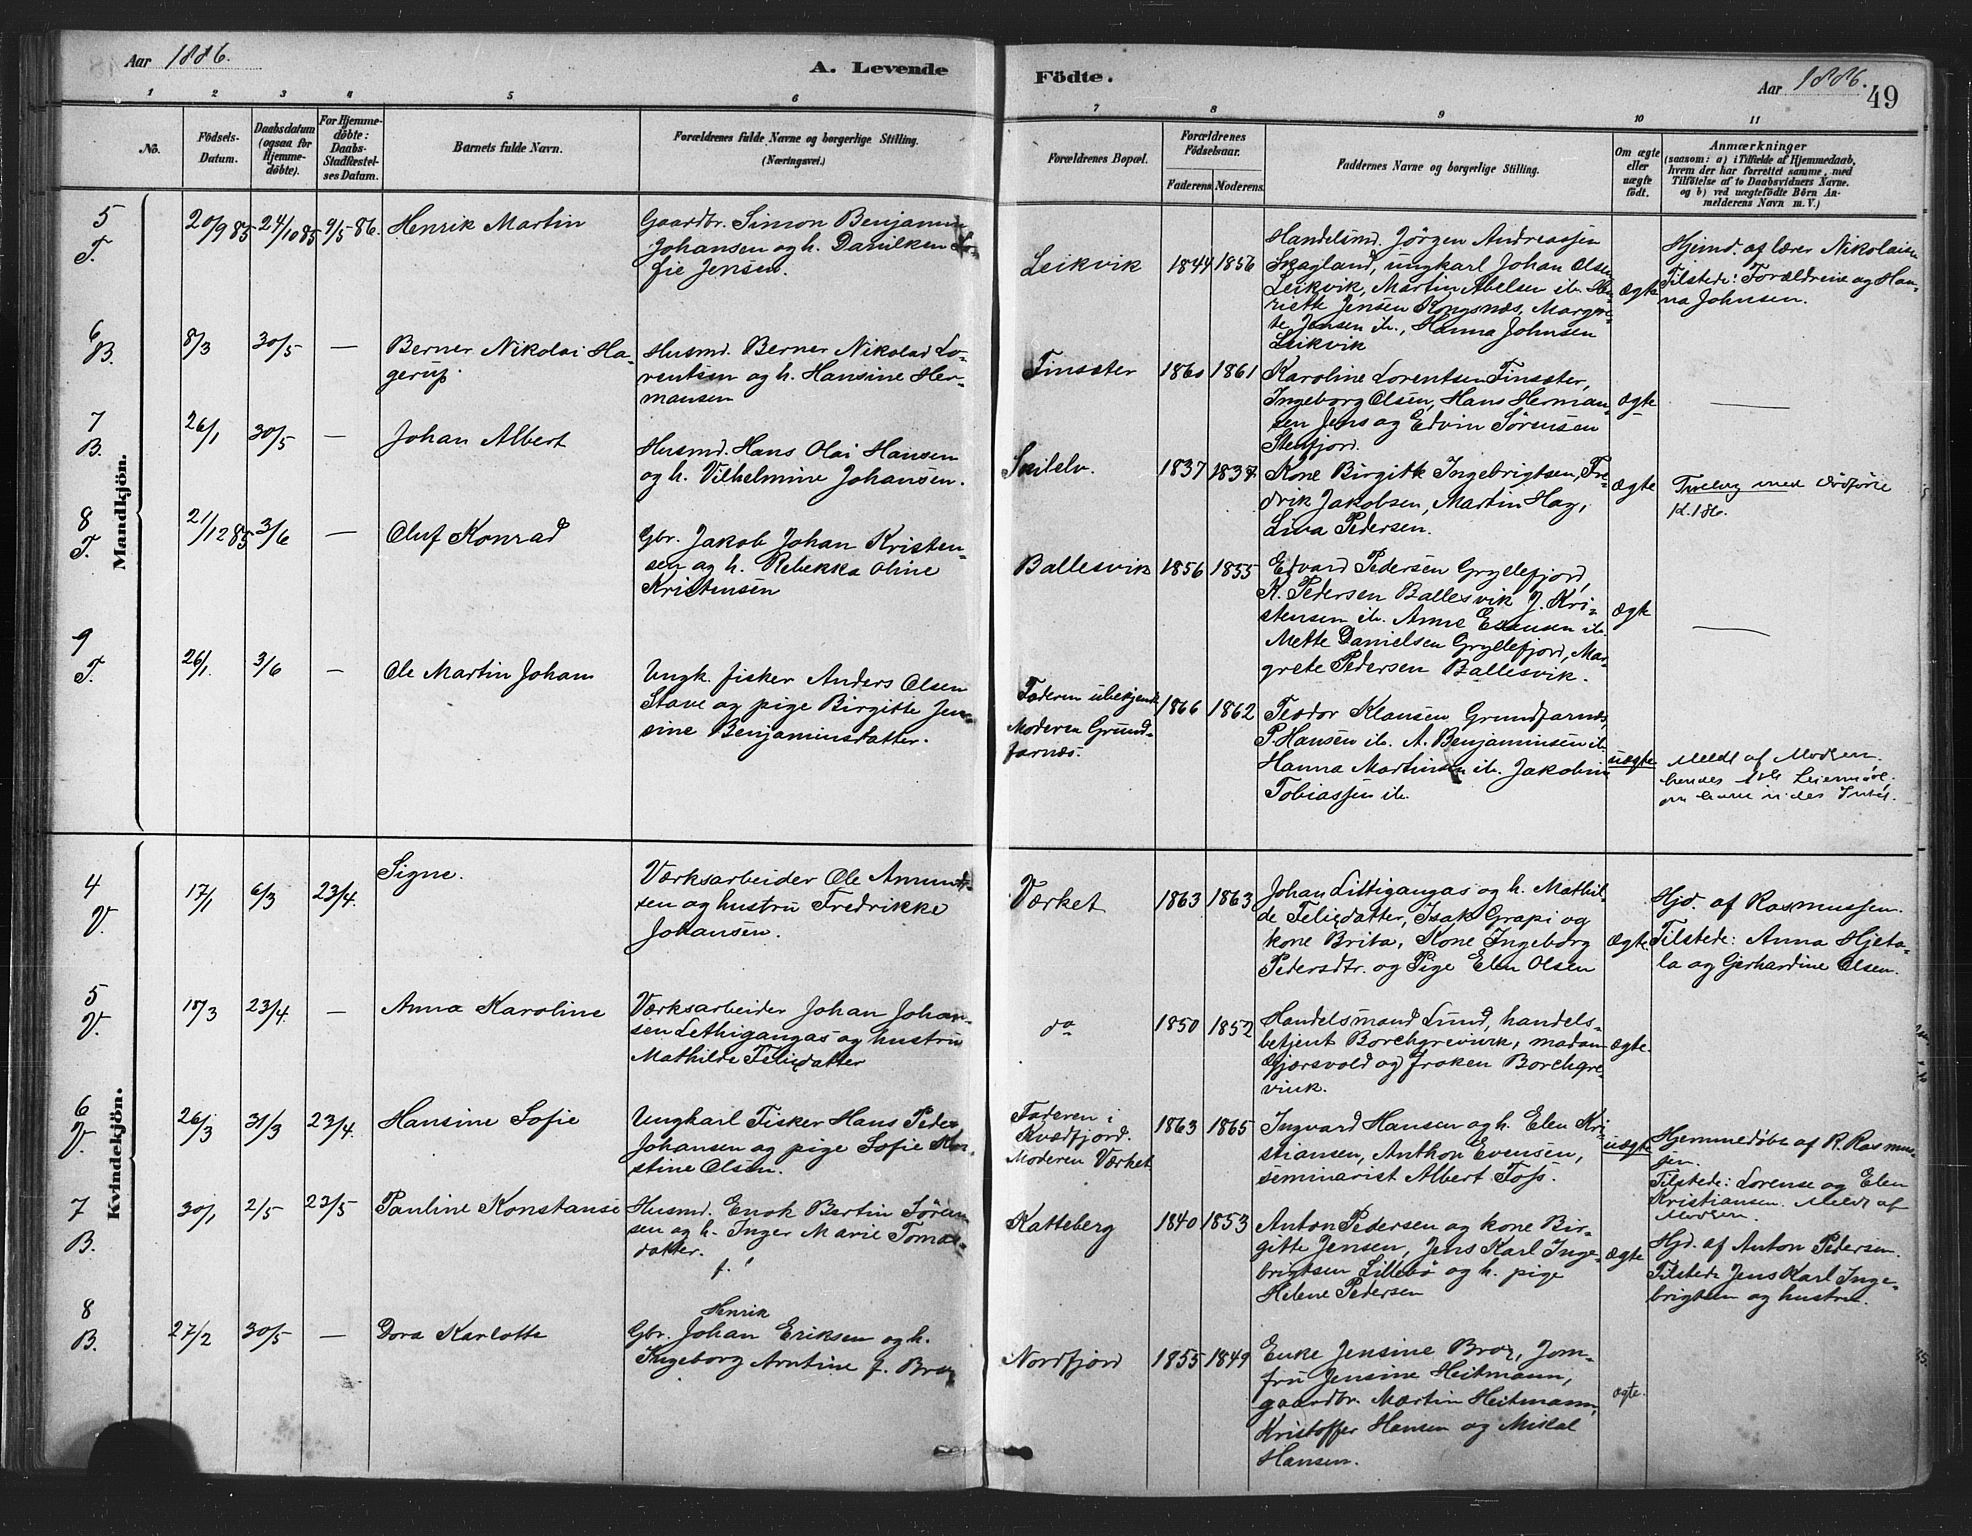 Aar 1886.
A. Levende
Födte.
Aar 1886.
49
1 2 3 4 5 6 7 8 9 10 11
No.
Födsels-
Datum.
Daabsdatum
(ogsaa for
Hjemme-
døbte).
For Hjemme-
døbte:
Daabs-
Stadfæstel-
ses Datum.
Barnets fulde Navn.
Forældrenes fulde Navne og borgerlige Stilling.
(Næringsvei.)
Forældrenes Bopæl.
Forældrenes
Fødselsaar.
Faderens. Moderens.
Faddernes Navne og borgerlige Stilling.
Om ægte
eller
uægte
födt.
Anmærkninger
(saasom: a) i Tilfælde af Hjemmedaab,
hvem der har forrettet samme, med
Tilföielse af to Daabsvidners Navne.
og b) ved uægtefödte Börn An-
melderens Navn m. V.)
Mandkjön.
5
T.
20/9 85 24/10 85 9/5 86.
Henrik Martin
Gaardbr. Simon Benjamin
Johansen og h. Danilken So-
fie Jensen.
Leikvik
1844 1856
Handelsmd. Jörgen Andreassen
Skagland, ungkarl Johan Olsen
Leikvik, Martin Abelsen ib. Hen-
riette Jensen Kongsnæs, Margre-
te Jensen ib., Hanna Johnsen
Leikvik
ægte
Hjemd. af lærer Nikolaisen
Tilstede: Forældrene og Han-
na Johnsen.
6
B.
8/3 30/5 —
Berner Nikolai Ha-
gerup.
Husmd. Berner Nikolai Lo-
rentsen og h. Hansine Her-
mansen
Finsæter
1860 1861
Karoline Lorentsen Finsæter,
Ingeborg Olsen, Hans Herman-
sen Jens og Edvin Sörensen
Stenfjord.
ægte
—
7
B.
26/1 30/5 —
Johan Albert
Husmd. Hans Olai Hansen
og h. Vilhelmine Johansen.
1837 1837
Kone Birgitte Ingebrigtsen, Fre-
drik Jakobsen, Martin Hag,
Lina Pedersen.
ægte
Tvilling med dödföd
8
T.
21/12 85 3/6 —
Oluf Konrad
Gbr. Jakob Johan Kristen-
sen og h. Rebekka Oline
Kristensen
Ballesvik
1856 1855
Edvard Pedersen Gryllefjord,
K. Pedersen Ballesvik J. Kri-
stensen ib. Anne Evensen ib.
Mette Danielsen Gryllefjord, Mar-
grete Pedersen Ballesvik.
ægte
—
9
T.
26/1. 3/6 —
Ole Martin Johan
Ungk. fisker Anders Olsen
Stave og pige Birgitte Jen-
sine Benjaminsdatter.
Faderen ubekjendt
Moderen Grund-
farnæs.
1866 1862
Teodor Klausen Grundfarnes
P. Hansen ib. A. Benjaminsen ib.
Hanna Martinsen ib. Jakobine
Tobiassen ib.
uægte
Meldt af Moderen.
hendes 1ste Leiermaal.
Kvindekjön.
4
V.
17/1 6/3 23/4.
Signe.
Værksarbeider Ole Amund-
sen og hustru Fredrikke
Johansen.
Værket
1863 1863
Johan Littigangas og h. Mathil-
de Felixdatter, Isak Grapi og
kone Brita, Kone Ingeborg
Pedersdtr. og Pige Elen Olsen
ægte
Hjd. af Rasmussen.
Tilstede: Anna Hjeta-
la og Gerhardine Olsen.
5
V.
15/3 23/4. —
Anna Karoline
Værksarbeider Johan Johan-
sen Lethigangas og hustru
Mathilde Felixdatter
do
1850 1852
Handelsmand Lund, handels-
betjent Borchgrevink, madam
Gjærsvold og froken Borchgre-
vink.
ægte.
6
V.
26/3 31/3 23/4.
Hansine Sofie
Ungkarl Fisker Hans Peder
Johansen og pige Sofie Kri-
stine Olsen.
Faderen i
Kvædfjord.
Moderen Værket
1863 1865
Ingvard Hansen og h. Elen Kri-
stiansen, Anthon Evensen,
seminarist Albert Foss.
uægte
Hjemmedøbt af R. Rasmus-
sen.
Tilstede: Lorense og Elen
Kristiansen. Meldt af
Moderen.
7
B.
30/1 2/5 23/5
Pauline Konstanse
Husmd. Enok Bertin Sören-
sen og h. Inger Marie Tomas-
datter.
Katteberg
1840 1853
Anton Pedersen og kone Bir-
gitte Jensen, Jens Karl Inge-
brigtsen Lillebö og h. pige
Helene Pedersen
ægte
Hjd. af Anton Pedersen.
Tilstede Jens Karl Inge-
brigtsen og hustru.
8
B.
27/2 30/5 —
Dora Karlotte
Henrik
Gbr. Johan Eriksen og h.
Ingeborg Arntine f. Brox
Nordfjord
1855 1849
Enke Jensine Brox, Jom-
fru Jensine Heitmann,
gaardbr. Martin Heitmann,
Kristoffer Hansen og Mikal
Hansen.
ægte.